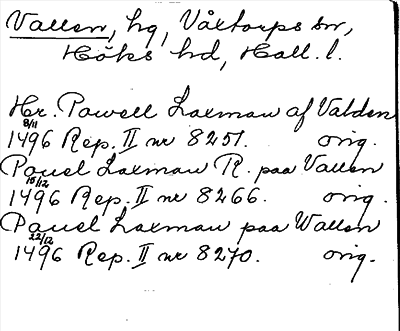 Vallen, hg, Våxtorps sn,
Höks hd, Hall. l.
Hr. Powell Laxman af Valden
8/11
1496 Rep. II nr 8251. orig.
Pouel Laxman R. paa Vallen
10/12
1496 Rep. II nr 8266. orig.
Pouel Laxman paa Wallen
22/12
1496 Rep. II nr 8270. orig.